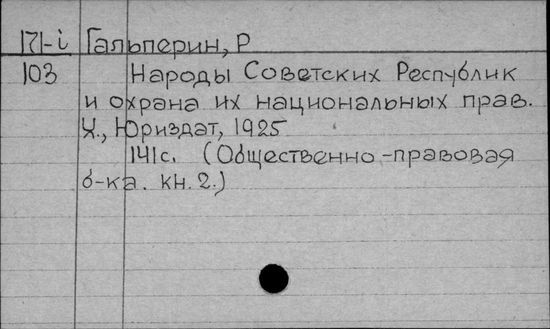 171-i Гальперин, Р
103 Народы Советских Республик
и охрана их национальных прав.
Х., Юриздат, 1925
141с. (Общественно-правовая
б-ка. кн. 2.)